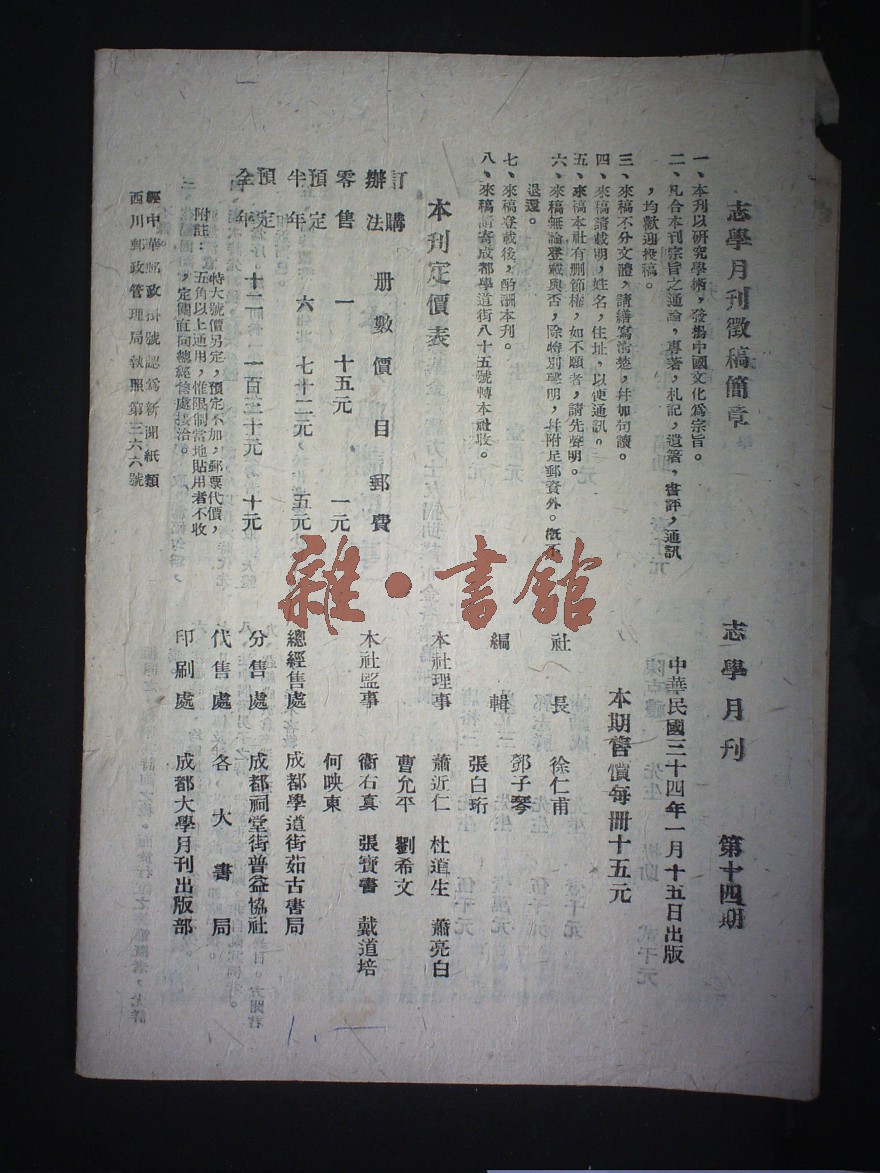 志學月刊徵稿簡章
一、本刊以研究學術，發揚中國文化爲宗旨。
二、凡合本刊宗旨之通論，專著，札記，遺著，書評，通訊
，均歡迎投稿。
三、來稿不分文體，請繕寫淸楚，幷加句讀。
四、來稿請載明，姓名，住址，以便通訊。
五、來稿本社有删節權，如不願者，請先聲明。
六、來稿無論登載與否，除特別聲明，幷附足郵資外。槪不
退還。
七、來稿登載後，酌酬本刊。
八、來稿請寄成都學道街八十五號轉本社收。
本刊定價表
訂購辦法 册數 價目 郵費
零售 一 十五元 一元
預定半年 六 七十二元 五元
預定全年 十二 一百三十元 十元
附註：特大號價另定，預定不加，郵票代價，
五角以上通用，惟限制當地貼用者不收
，定閱直向總經售處接洽。
經中華郵政掛號認爲新聞紙類
西川郵政管理局執照第三六六號
志學月刊 第十四期
中華民國三十四年一月十五日出版
本期售價每册十五元
社長 徐仁甫
編輯 鄧子琴
張白珩
本社理事 蕭近仁 杜道生 蕭亮白
曹允平 劉希文
本社監事 衞右眞 張寶書 戴道培
何映東
總經售處 成都學道街茹古書局
分售處 成都祠堂街普益協社
代售處 各大書局
印刷處 成都大學月刊出版部
雜·書館